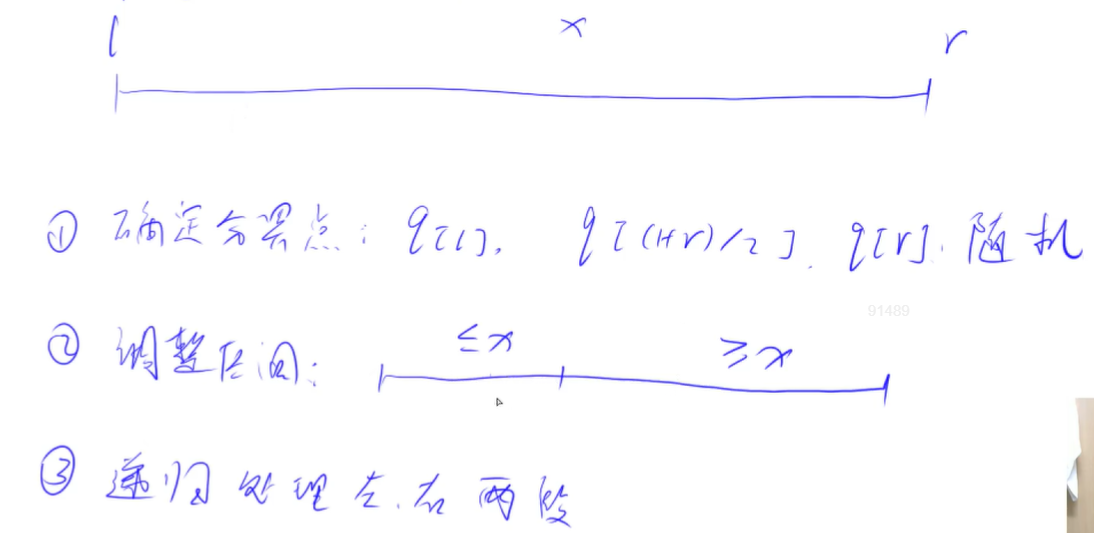 l x r
① 确定分界点：q[l]，q[(l+r)/2]，q[r]，随机
91489
② 调整区间：≤x ≥x
③ 递归处理左、右两段